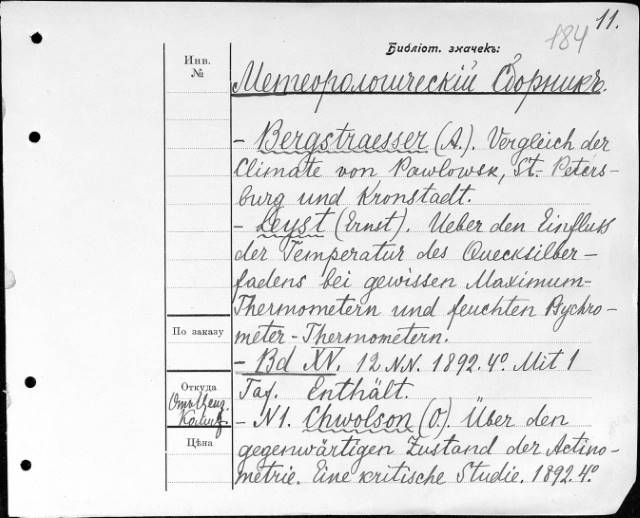 11.
184
Библіот. значекъ:
Инв.
№
Метеорологическій Сборникъ.
- Bergstraesser (A.). Vergleich der
Climate von Pawlowsk, St.-Peters-
burg und Kronstadt.
- Leyst (Ernst). Ueber den Einfluss
der Temperatur des Quecksilber-
fadens bei gewissen Maximum-
Thermometern und feuchten Psychro-
meter-Thermometern.
По заказу
- Bd XV. 12 NN. 1892. 4º. Mit 1
Taf. Enthält.
Откуда
Отъ Ценз.
- N1. Chwolson (O.). Über den
gegenwärtigen Zustand der Actino-
metrie. Eine kritische Studie. 1892. 4º.
Цѣна